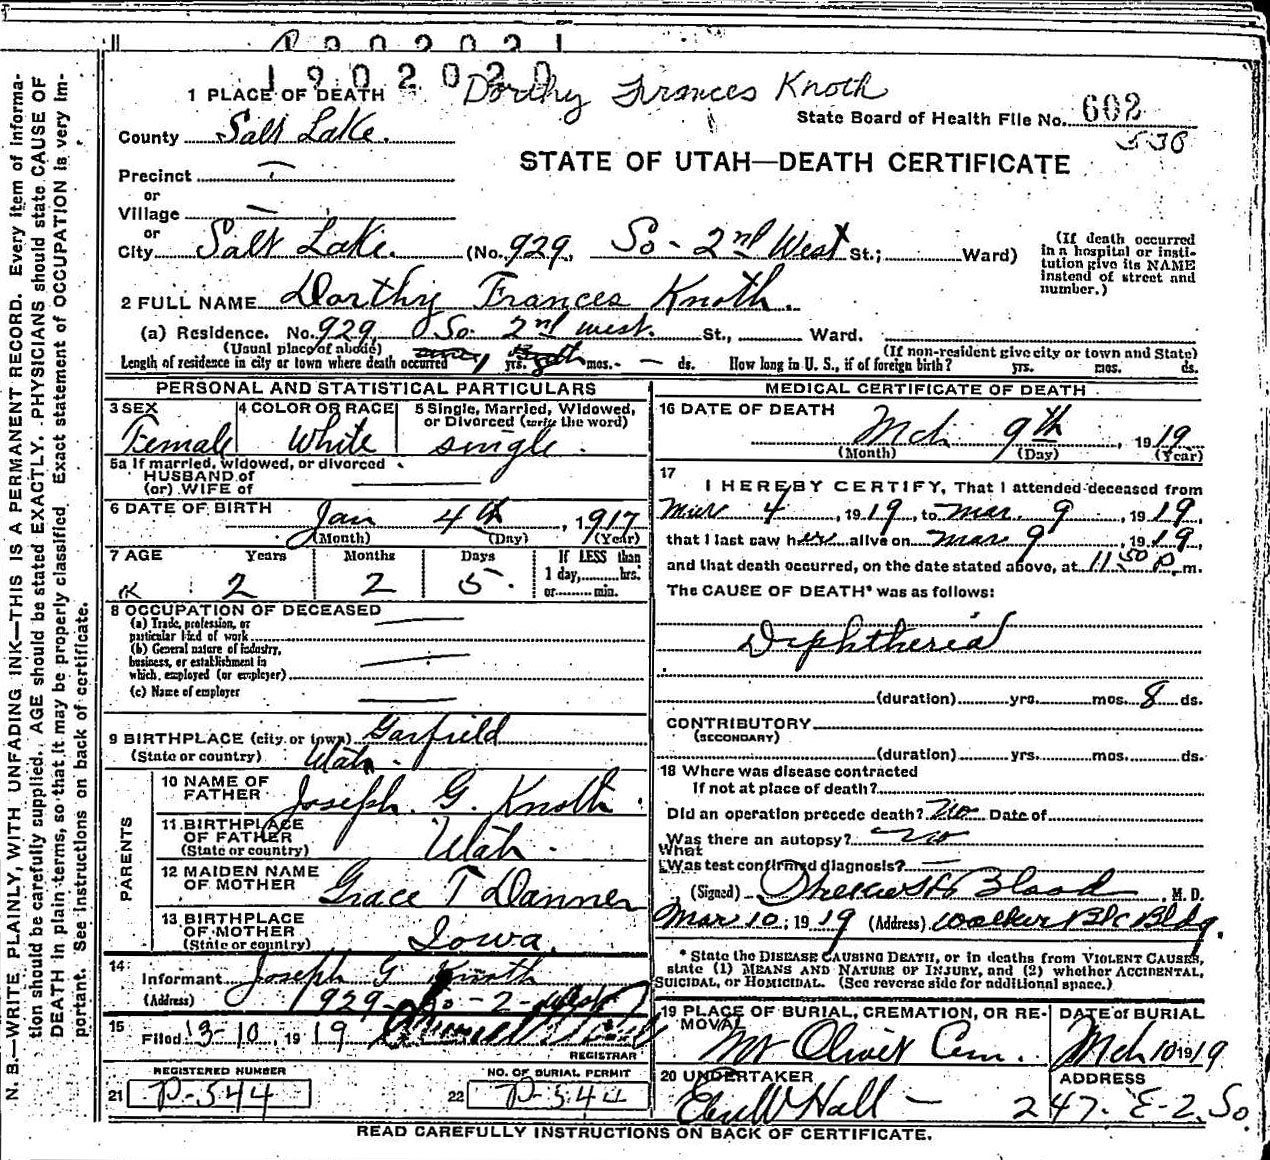 1902020
Dorthy Frances Knoth
1 PLACE OF DEATH
State Board of Health File No. 602
538
County Salt Lake.
STATE OF UTAH—DEATH CERTIFICATE
Precinct —
or
Village —
or
City Salt Lake. (No. 929, So - 2nd West St.; Ward)
(If death occurred in a hospital or institution give its NAME instend of street and number.)
2 FULL NAME Dorthy Frances Knoth.
(a) Residence. No. 929 So. 2nd west. St., Ward.
(Usual place of abode) (If non-resident give city or town and State)
Length of residence in city or town where death occurred yrs. mos. - — ds. How long in U. S., if of foreign birth? yrs. mos. ds.
PERSONAL AND STATISTICAL PARTICULARS
3 SEX Female
4 COLOR OR RACE White
5 Single, Married, Widowed, or Divorced (write the word) single.
5a If married, widowed, or divorced
HUSBAND of
(or) WIFE of
6 DATE OF BIRTH Jan 4th, 1917
(Month) (Day) (Year)
7 AGE Years 2 Months 2 Days 5.
If LESS than 1 day, hrs. or min.
8 OCCUPATION OF DECEASED
(a) Trade, profession, or particular kind of work —
(b) General nature of industry, business, or establishment in which employed (or employer) —
(c) Name of employer —
9 BIRTHPLACE (city or town) Garfield
(State or country) Utah.
PARENTS
10 NAME OF FATHER Joseph. G. Knoth.
11 BIRTHPLACE OF FATHER (State or country) Utah.
12 MAIDEN NAME OF MOTHER Grace T Danner
13 BIRTHPLACE OF MOTHER (State or country) Iowa.
14 Informant Joseph G Knoth
(Address) 929 - So - 2 - West
15 Filed 3-10, 1919
REGISTRAR
REGISTERED NUMBER
21 P-544
NO. OF BURIAL PERMIT
22 P-544
MEDICAL CERTIFICATE OF DEATH
16 DATE OF DEATH Mch 9th, 1919
(Month) (Day) (Year)
17 I HEREBY CERTIFY, That I attended deceased from
Mar 4, 1919, to Mar. 9, 1919,
that I last saw her alive on Mar 9, 1919,
and that death occurred, on the date stated above, at 11 50 P. m.
The CAUSE OF DEATH* was as follows:
Diphtheria
(duration) yrs. mos. 8 ds.
CONTRIBUTORY
(SECONDARY)
(duration) yrs. mos. ds.
18 Where was disease contracted
If not at place of death?
Did an operation precede death? No Date of
Was there an autopsy? No
What
Was test confirmed diagnosis? —
(Signed) Blood M. D.
Mar 10, 1919 (Address) Walker Bk Bldg.
* State the DISEASE CAUSING DEATH, or in deaths from VIOLENT CAUSES, state (1) MEANS AND NATURE OF INJURY, and (2) whether ACCIDENTAL, SUICIDAL, or HOMICIDAL. (See reverse side for additional space.)
19 PLACE OF BURIAL, CREMATION, OR REMOVAL
Mt Olivet Cem.
DATE of BURIAL
Mch 10 1919
20 UNDERTAKER
Hall —
ADDRESS
247. E-2. So
READ CAREFULLY INSTRUCTIONS ON BACK OF CERTIFICATE.
N. B.—WRITE PLAINLY, WITH UNFADING INK—THIS IS A PERMANENT RECORD. Every item of information should be carefully supplied. AGE should be stated EXACTLY. PHYSICIANS should state CAUSE OF DEATH in plain terms, so that it may be properly classified. Exact statement of OCCUPATION is very important. See instructions on back of certificate.